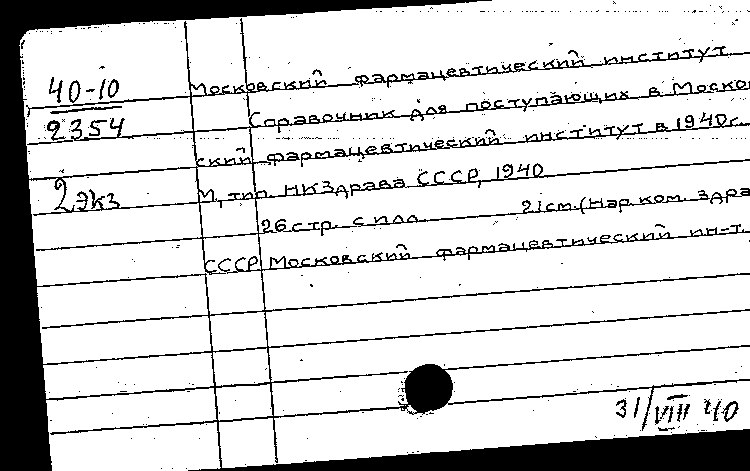 40-10 Московский фармацевтический институт
2354 Справочник для поступающих в Москов
ский фармацевтический институт в 1940г.
2 экз М, тип. НКЗдрава СССР, 1940
26 стр. с илл. 21 см. (Нар. ком. здра
СССР Московский фармацевтический ин-т
31/VIII 40